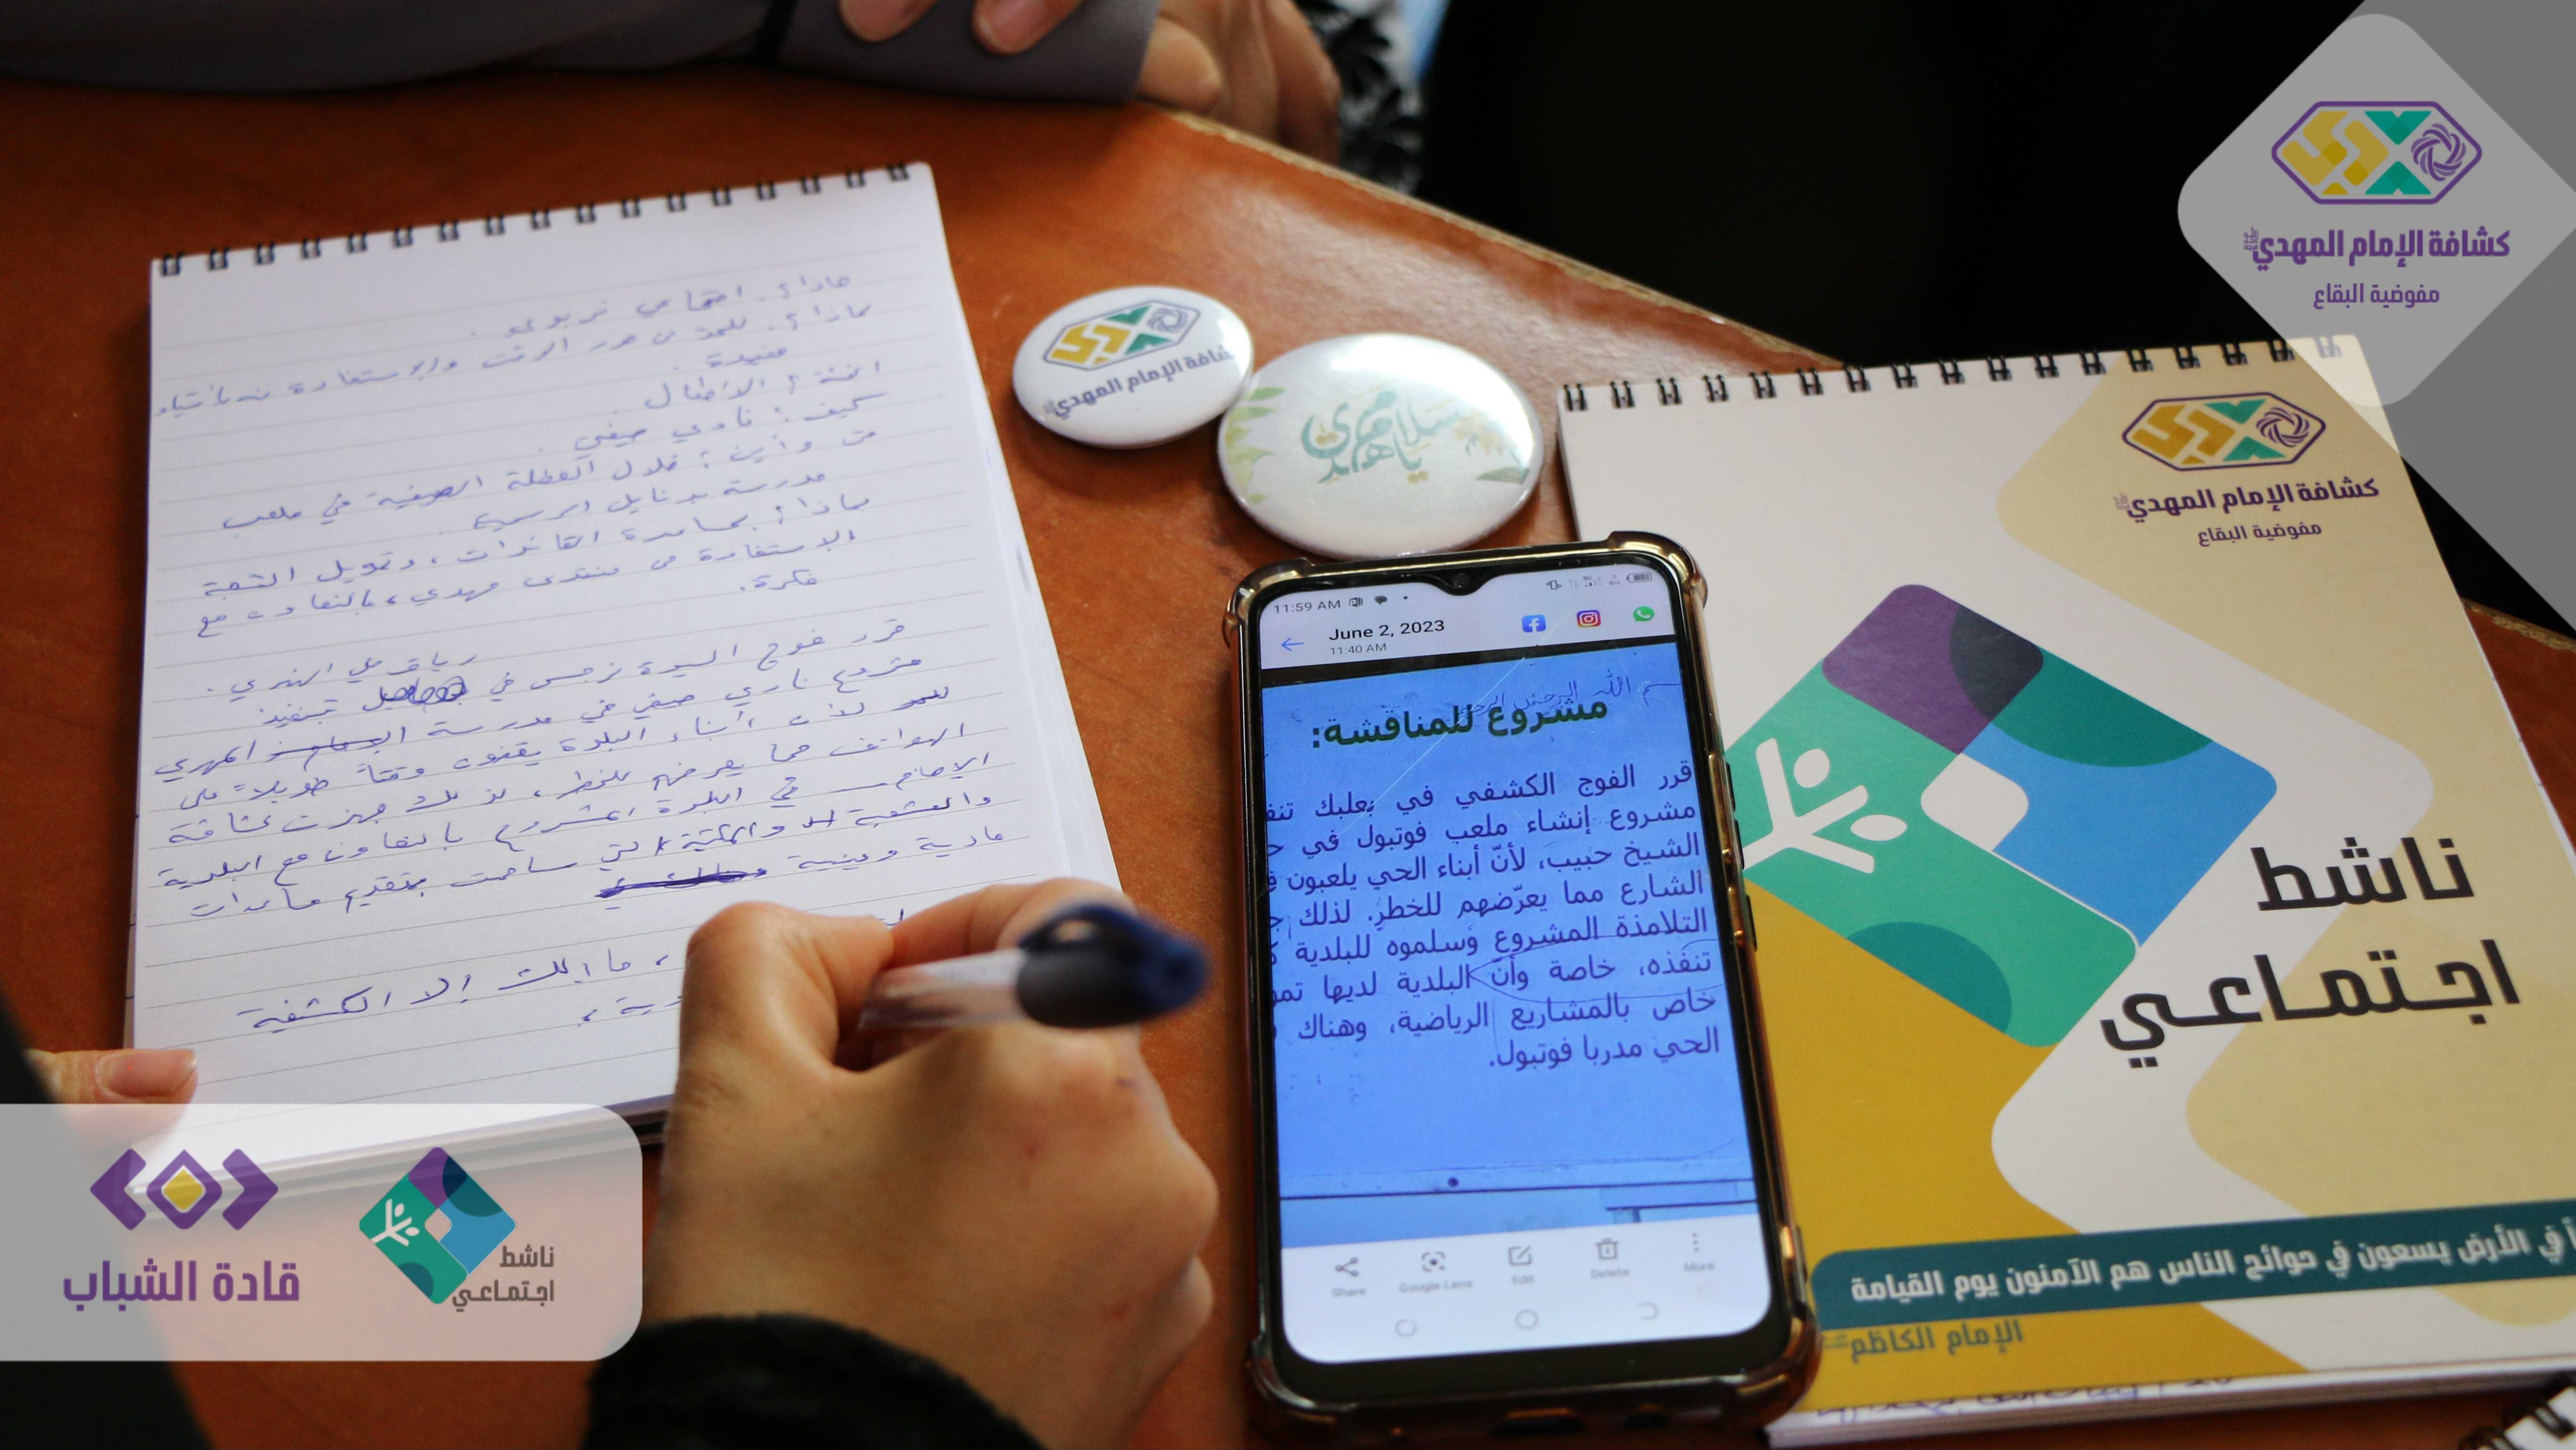 كشافة الإمام المهدي
مفوضية البقاع
ماذا؟: اجتماعي تربوي.
لماذا؟: للحد من هدر الوقت والاستفادة من أشياء
مفيدة.
الفئة؟: الأطفال
كيف؟: نادي صيفي.
متى وأين؟: خلال العطلة الصيفية في ملعب
مدرسة بدنايل الرسمية.
بماذا؟: بمساعدة القائدات، وتمويل الشعبة
الاستفادة من منتدى مهدي، بالتعاون مع
فكرة.
رياق علي النهري.
قرر فوج السيدة نرجس في تنفيذ
مشروع نادي صيفي في مدرسة المهدي
لأن أبناء البلدة يقضون وقتاً طويلاً على
الهواتف مما يعرضهم للخطر، لذلك جهزت كشافة
الإمام في البلدة المشروع بالتعاون مع البلدية
والشعبة والمكتبة التي ساهمت بتقديم مساعدات
مادية وعينية
، ما إلك إلا الكشفية
كشافة الإمام المهدي
سلام يا مهدي
11:59 AM
June 2, 2023
11:40 AM
بسم الله الرحمن الرحيم
مشروع للمناقشة:
قرر الفوج الكشفي في بعلبك
مشروع إنشاء ملعب فوتبول في
الشيخ حبيب، لأنّ أبناء الحي يلعبون
الشارع مما يعرّضهم للخطر. لذلك
التلامذة المشروع وسلموه للبلدية
تنفّذه، خاصة وأنّ البلدية لديها
خاص بالمشاريع الرياضية، وهناك
الحي مدربا فوتبول.
Share
Google Lens
Edit
Delete
More
كشافة الإمام المهدي
مفوضية البقاع
ناشط
اجتماعي
في الأرض يسعون في حوائج الناس هم الآمنون يوم القيامة
الإمام الكاظم
قادة الشباب
ناشط
اجتماعي